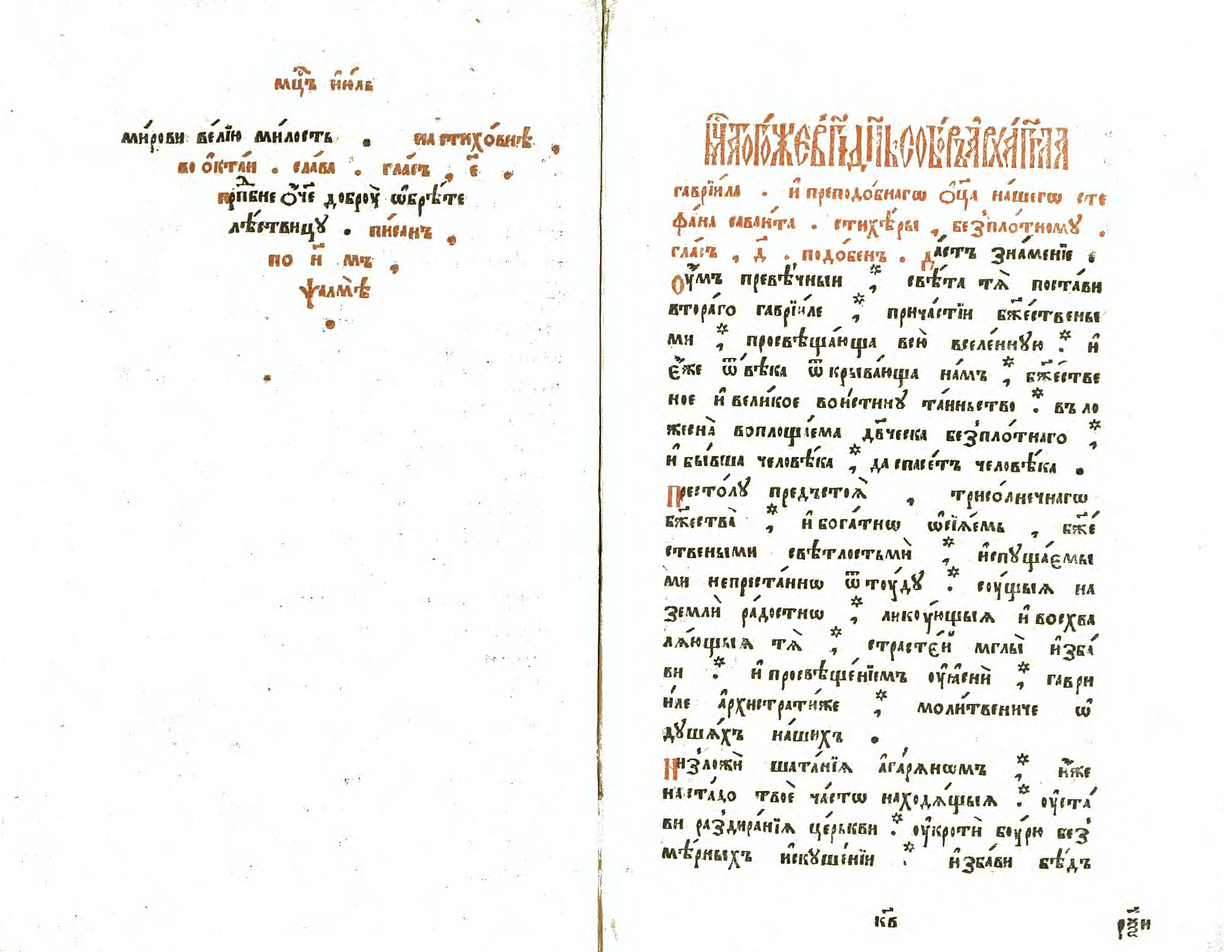 мц҃ъ і҆ю́ль
ми́рови ве́лїю ми́лость . на стихо́внѣ ,
во ѻ҆кта́и . сла́ва . гла́съ , є҃ .
прпⷣбне ѻ҆́ч҃е доброу̀ ѡ҆брѣ́те
лѣ́ствицу . пи́санъ ,
по н҃ мъ ,
ѱалмѣ̀
тогѡ́же въ к҃ѕ дн҃ь собо́ръ а҆рха́гг҃ла
гаврїи́ла . и҆ преподо́бнагѡ ѻ҆ц҃а̀ на́шегѡ сте
фа́на савваи́та . стихѣ́ры , безпло́тному .
гла́съ , д҃ . подо́бенъ . да́стъ зна́менїе .
Оу҆́мъ превѣ́чныи ⁏ свѣ́та тѧ̀ поста́ви
втора́го гаврїи́ле ⁏ прича́стїи бж҃е́ствены
ми ⁏ просвѣща́юща всю̀ вселе́нную : и҆
є҆́же ѿ вѣ́ка ѿкрыва́юща на́мъ ⁏ бж҃е́стве
ное и҆ вели́кое вои́стину та́иньство : въ ло
жесна̀ воплощае́ма дв҃ческа безпло́тнаго ⁏
и҆ бы́вша человѣ́ка ⁏ да спасе́тъ человѣ́ка .
Престо́лу предъстоѧ̀ , трисо́лнечнагѡ
бж҃ества̀ ⁏ и҆ бога́тнѡ ѡ҆сїѧ́емь , бж҃е́
ствеными свѣ́тлостьми ⁏ и҆спуща́емы
ми непреста́ннѡ ѿтоу́ду : соу́щыѧ на
землѝ ра́достнѡ ⁏ ликоу́ющыѧ и҆ восхва
лѧ́ющыѧ тѧ̀ ⁏ страсте́и мглы̀ и҆зба́
ви : и҆ просвѣще́нїемъ оу҆ѧснѝ ⁏ гаври
и́ле а҆рхистрати́же ⁏ моли́твениче ѡ҆
душа́хъ на́шихъ .
Низложѝ шата́нїѧ а҆гарѧ́нѡмъ ⁏ и҆̀же
на ста́до твоѐ ча́стѡ находѧ́щыѧ : оу҆ста́
ви раздира́нїѧ це́рькви : оу҆кротѝ боу́рю без
мѣ́рныхъ и҆скуше́нїи : и҆зба́ви бѣ́дъ
кв҃